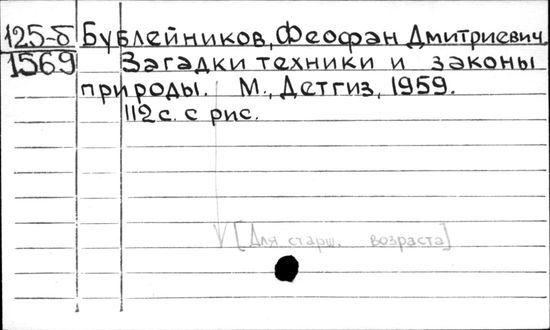 125-б Бублейников, Феофан Дмитриевич.
1569 Загадки техники и законы
природы. М., Детгиз, 1959.
112 с. с рис.
[Для старш. возраста]